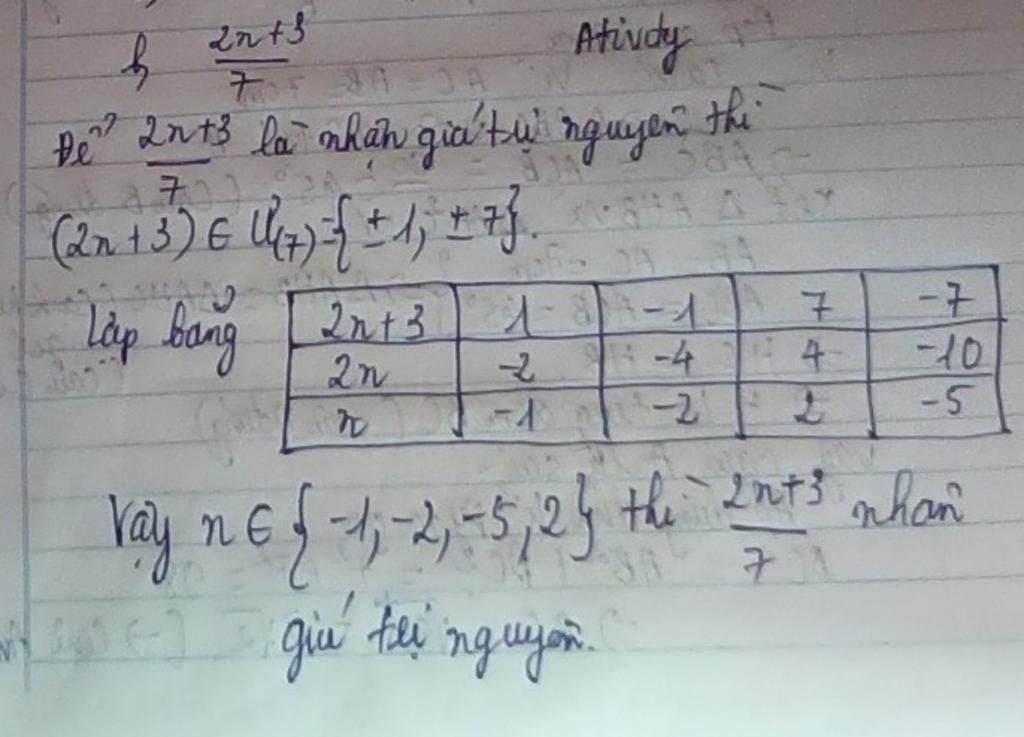 b, 2n+3/7 Ativdy
Để 2n+3/7 là nhận giá trị nguyên thì
(2n+3) ∈ Ư(7)={±1, ±7}.
Lập bảng
2n+3 1 -1 7 -7
2n -2 -4 4 -10
n -1 -2 2 -5
Vậy n ∈ {-1,-2,-5,2} thì 2n+3/7 nhận
giá trị nguyên.